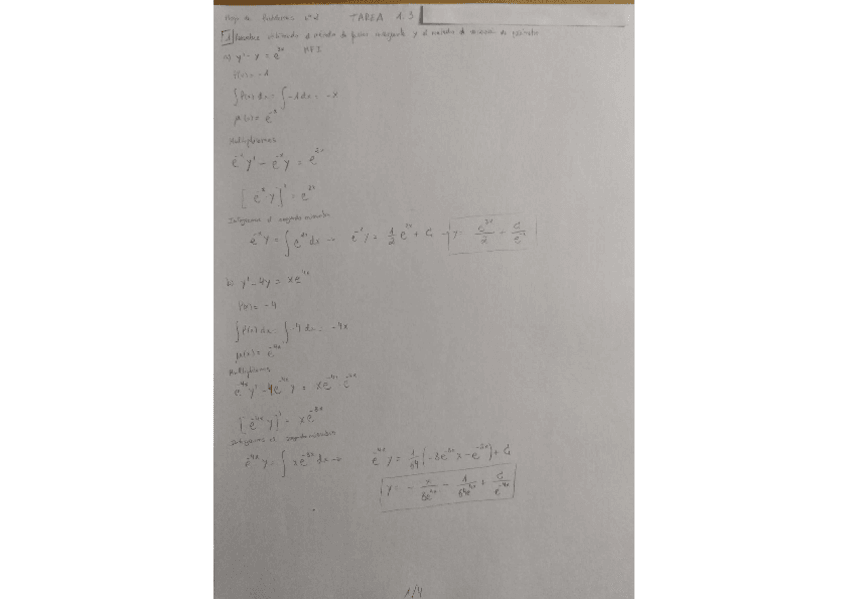 Hoja de Problemas nº2 TAREA 1.3
1 Resolver utilizando el método de factor integrante y el método de variación de parámetro
a) y' - x = e^3x
P(x) = -1
∫P(x) dx = ∫-1 dx = -x
μ(x) = e^-x
Multiplicamos
e^-x y' - e^-x y = e^2x
[e^-x y]' = e^2x
Integramos el segundo miembro
e^-x y = ∫e^2x dx → e^-x y = 1/2 e^2x + C → y = e^3x/2 + C/e^-x
b) y' - 4y = x e^-4x
P(x) = -4
∫P(x) dx = ∫-4 dx = -4x
μ(x) = e^-4x
Multiplicamos
e^-4x y' - 4e^-4x y = x e^-4x e^-4x
[e^-4x y]' = x e^-8x
Integramos el segundo miembro
e^-4x y = ∫x e^-8x dx → e^-4x y = 1/64 (-8e^-8x x - e^-8x) + C
y = - x/8e^4x - 1/64e^4x + C/e^-4x
1/4